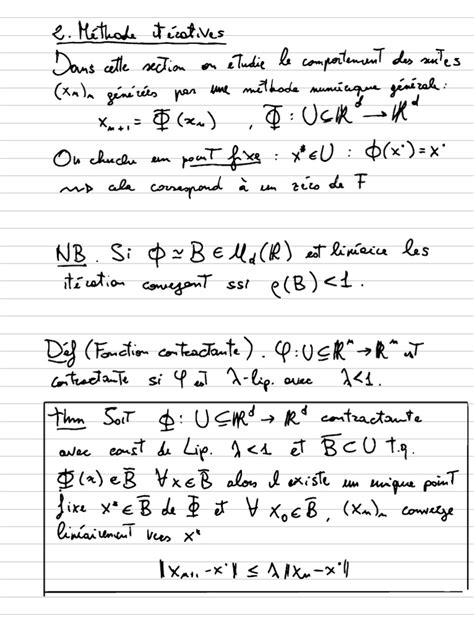 2. Méthode itératives
Dans cette section on étudie le comportement des suites
(xₙ)ₙ générées par une méthode numérique générale:
xₙ₊₁ = Φ(xₙ) , Φ: U⊆ℝᵈ → ℝᵈ
On cherche un point fixe : x*∈U : Φ(x*)=x*
⇝ cela correspond à un zéro de F
NB. Si Φ ≃ B ∈ M_d(ℝ) est linéaire les
itération convergent ssi ρ(B)<1.
Déf (Fonction contractante). φ: U⊆ℝⁿ→ℝⁿ est
contractante si φ est λ-lip. avec λ<1.
thm Soit Φ: U⊆ℝᵈ → ℝᵈ contractante
avec const de Lip. λ<1 et B̄⊂U t.q.
Φ(x)∈B̄ ∀x∈B̄ alors il existe un unique point
fixe x*∈B̄ de Φ et ∀ x₀∈B̄, (xₙ)ₙ converge
linéairement vers x*
‖xₙ₊₁-x*‖ ≤ λ‖xₙ-x*‖